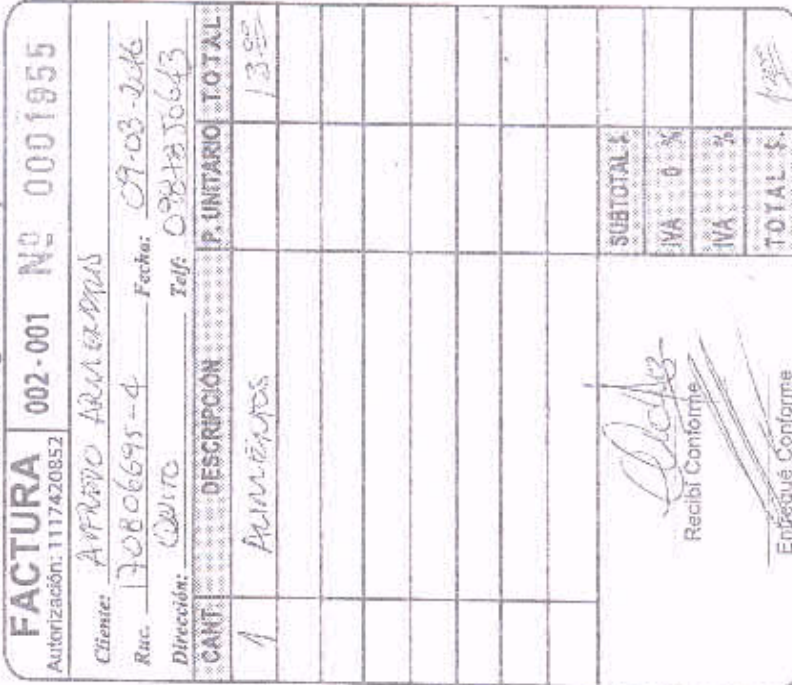 FACTURA 002-001 Nº 0001955
Autorización: 1117420852
Cliente: ALFREDO
Ruc. 170806695-4 Fecha: 09-03-2016
Dirección: QUITO Telf:
CANT. DESCRIPCIÓN P. UNITARIO TOTAL
1 ALIMENTOS 13.00
SUBTOTAL $
IVA 0 %
IVA %
TOTAL $.
Recibí Conforme
Entregué Conforme